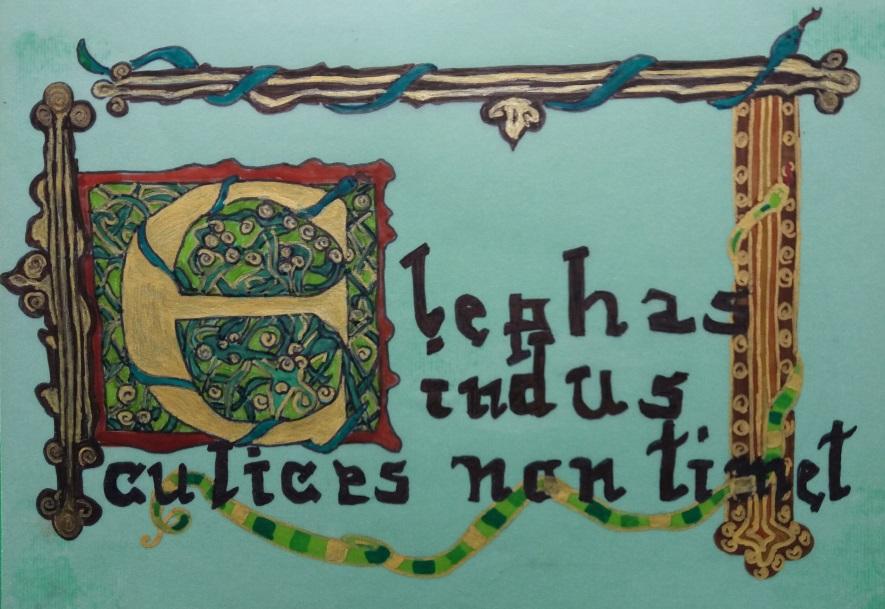 Elephas
indus
culices non timet